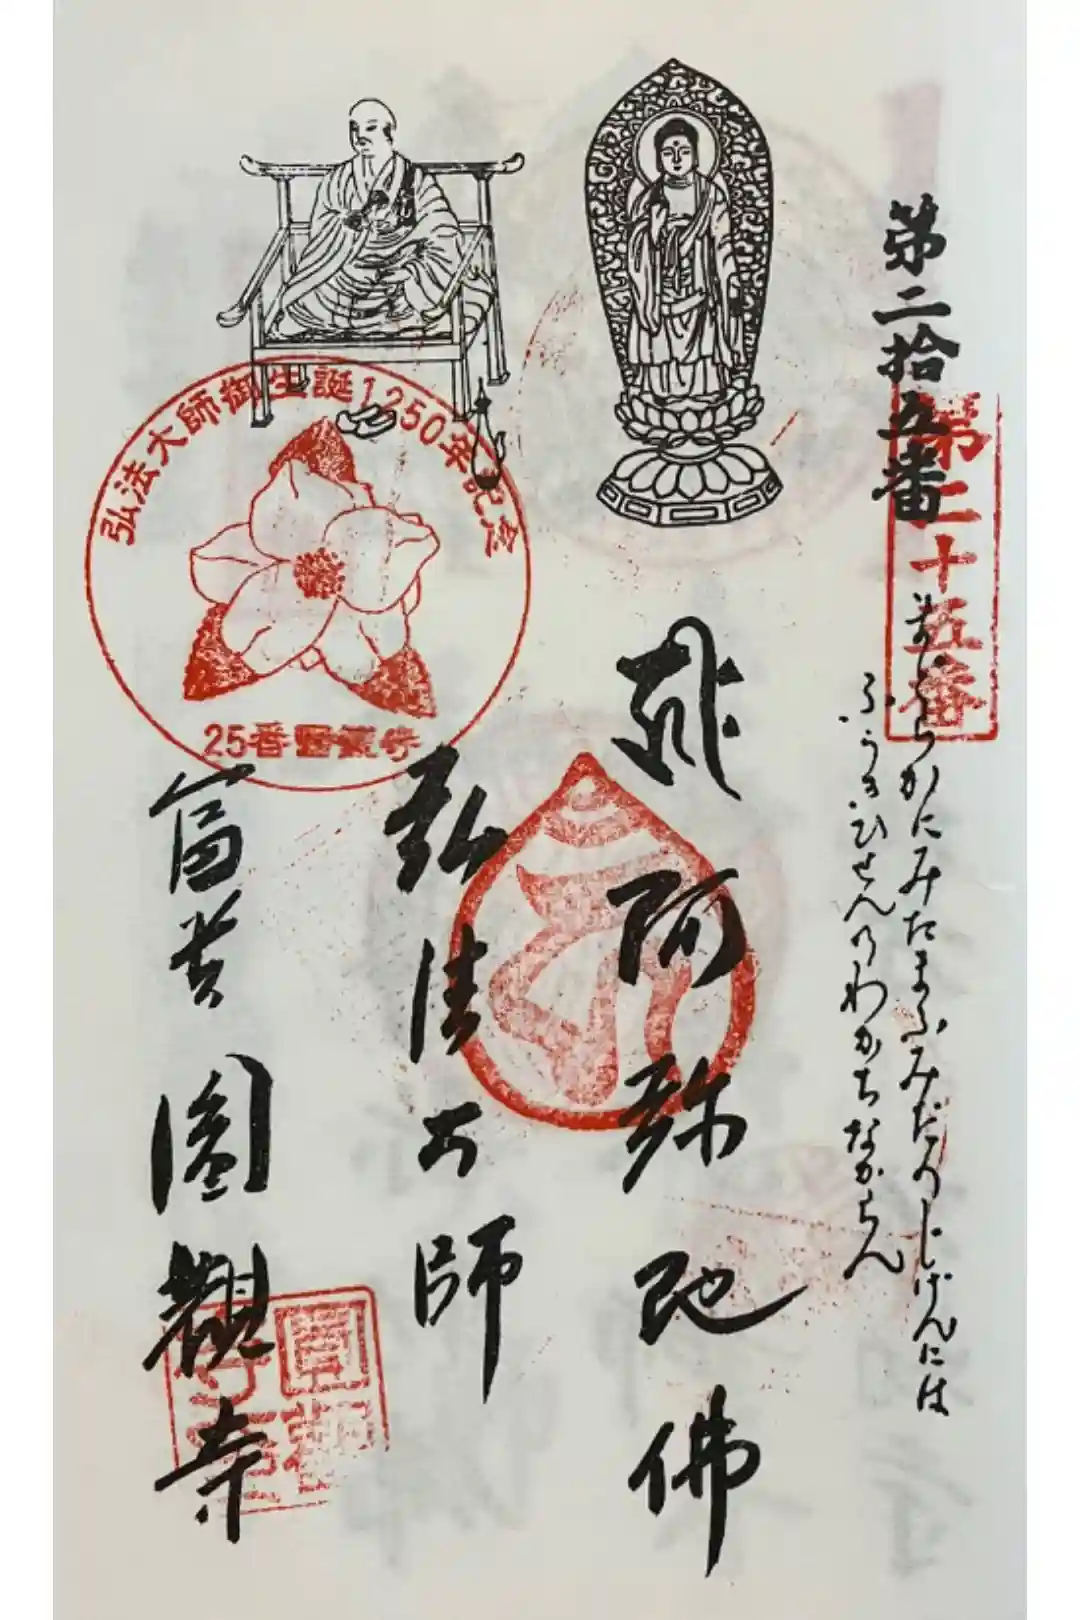 第二拾五番
第二十五番
あきらかにみたまふみだのしげんには
ふうきひせんのわかちなからん
阿弥陀佛
弘法大師
富貴 圓觀寺
弘法大師御生誕1250年記念
25番圓觀寺